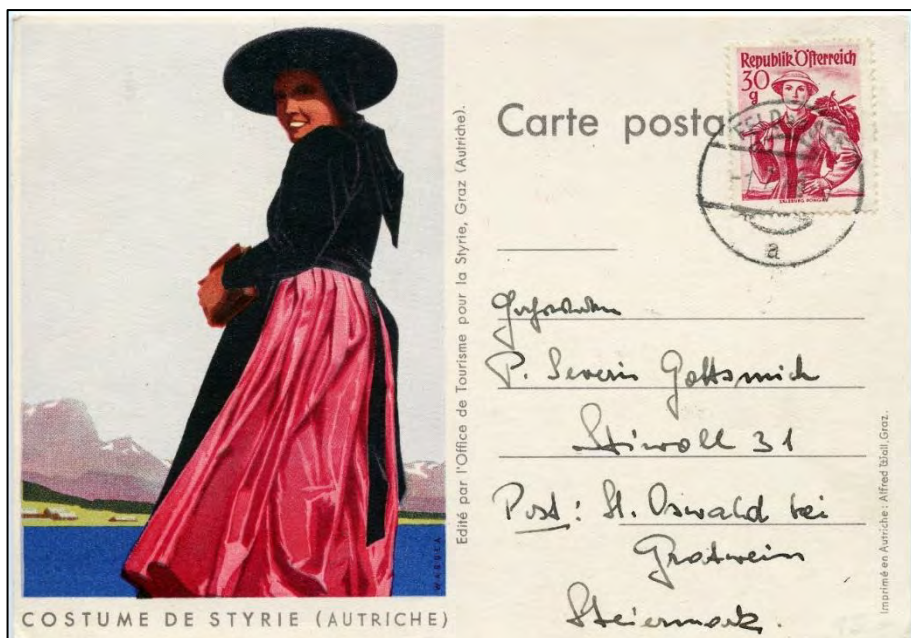 COSTUME DE STYRIE (AUTRICHE)
Edité par l'Office de Tourisme pour la Styrie, Graz (Autriche).
Carte posta
Republik Österreich
30
g
SALZBURG PONGAU
a
Hochwürden
P. Severin Gottsmich
Stiwoll 31
Post: St. Oswald bei
Gratwein
Steiermark.
Imprimé en Autriche: Alfred Wall, Graz.